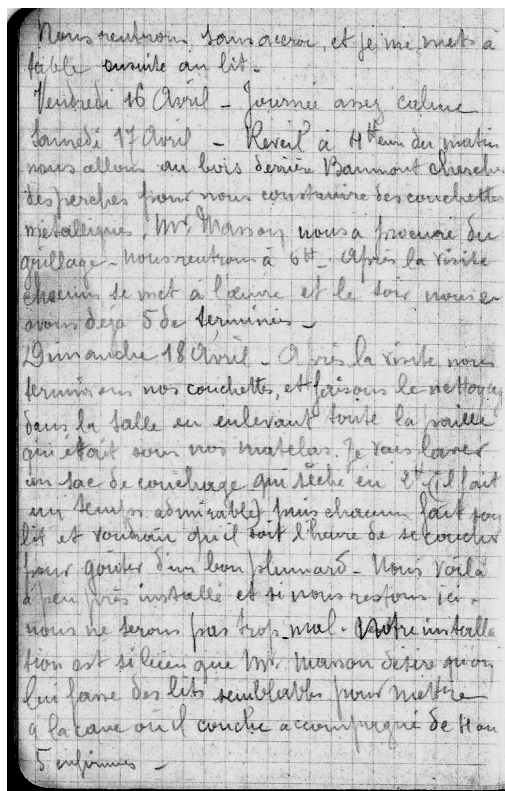 Nous rentrons sans accroc, et je me mets à
table ensuite au lit.
Vendredi 16 Avril - Journée assez calme
Samedi 17 Avril - Réveil à 4 Heures du matin
nous allons au bois derrière Baumont chercher
des perches pour nous construire des couchettes
metalliques, Mr. Masson nous a procuré du
grillage - nous rentrons à 6H - Après la visite
chacun se met à l'œuvre et le soir nous en
avons déjà 5 de terminées -
Dimanche 18 Avril - Après la visite nous
terminons nos couchettes, et faisons le nettoyage
dans la salle en enlevant toute la paille
qui était sous nos matelas. Je vais laver
un sac de couchage qui sèche en 2H (il fait
un temps admirable) puis chacun fait son
lit et voudrait qu'il soit l'heure de se coucher
pour goûter d'un bon plumard - Nous voilà
à peu près installé et si nous restons ici,
nous ne serons pas trop mal. Notre installa
tion est si bien que Mr. Masson désire qu'on
lui fasse des lits semblables pour mettre
à la cave où il couche accompagné de 4 ou
5 infirmiers -